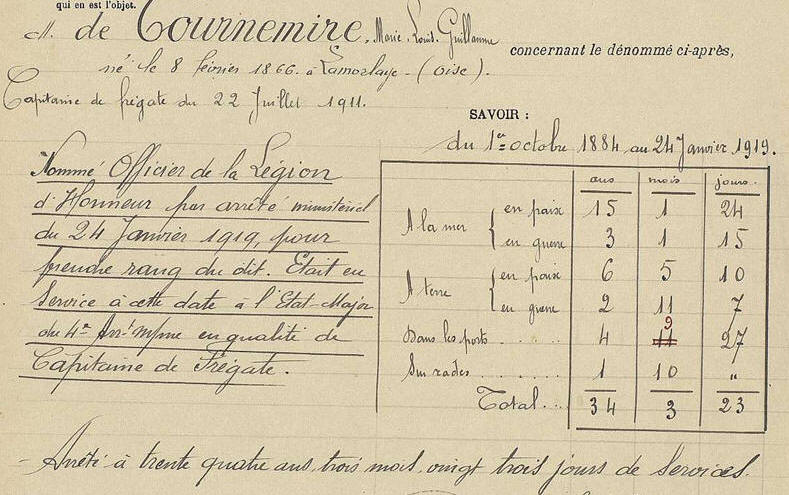 qui en est l'objet.
M. de Tournemire, Marie Louis Guillaume
concernant le dénommé ci-après,
né le 8 février 1866 à Lamorlaye - (Oise).
Capitaine de frégate du 22 Juillet 1911.
SAVOIR :
du 1er octobre 1884 au 24 Janvier 1919.
Nommé Officier de la Légion
d'Honneur par arrêté ministériel
du 24 Janvier 1919, pour
prendre rang du dit. Etait en
Service à cette date à l'Etat-Major
du 4e Arrt Mme en qualité de
Capitaine de Frégate.
ans mois jours.
A la mer { en paix 15 1 24
en guerre 3 1 15
A terre { en paix 6 5 10
en guerre 2 11 7
Dans les ports ..... 4 11 9 27
Sur rades ..... 1 10 "
Total ... 34 3 23
- Arrêté à trente quatre ans, trois mois, vingt trois jours de services.